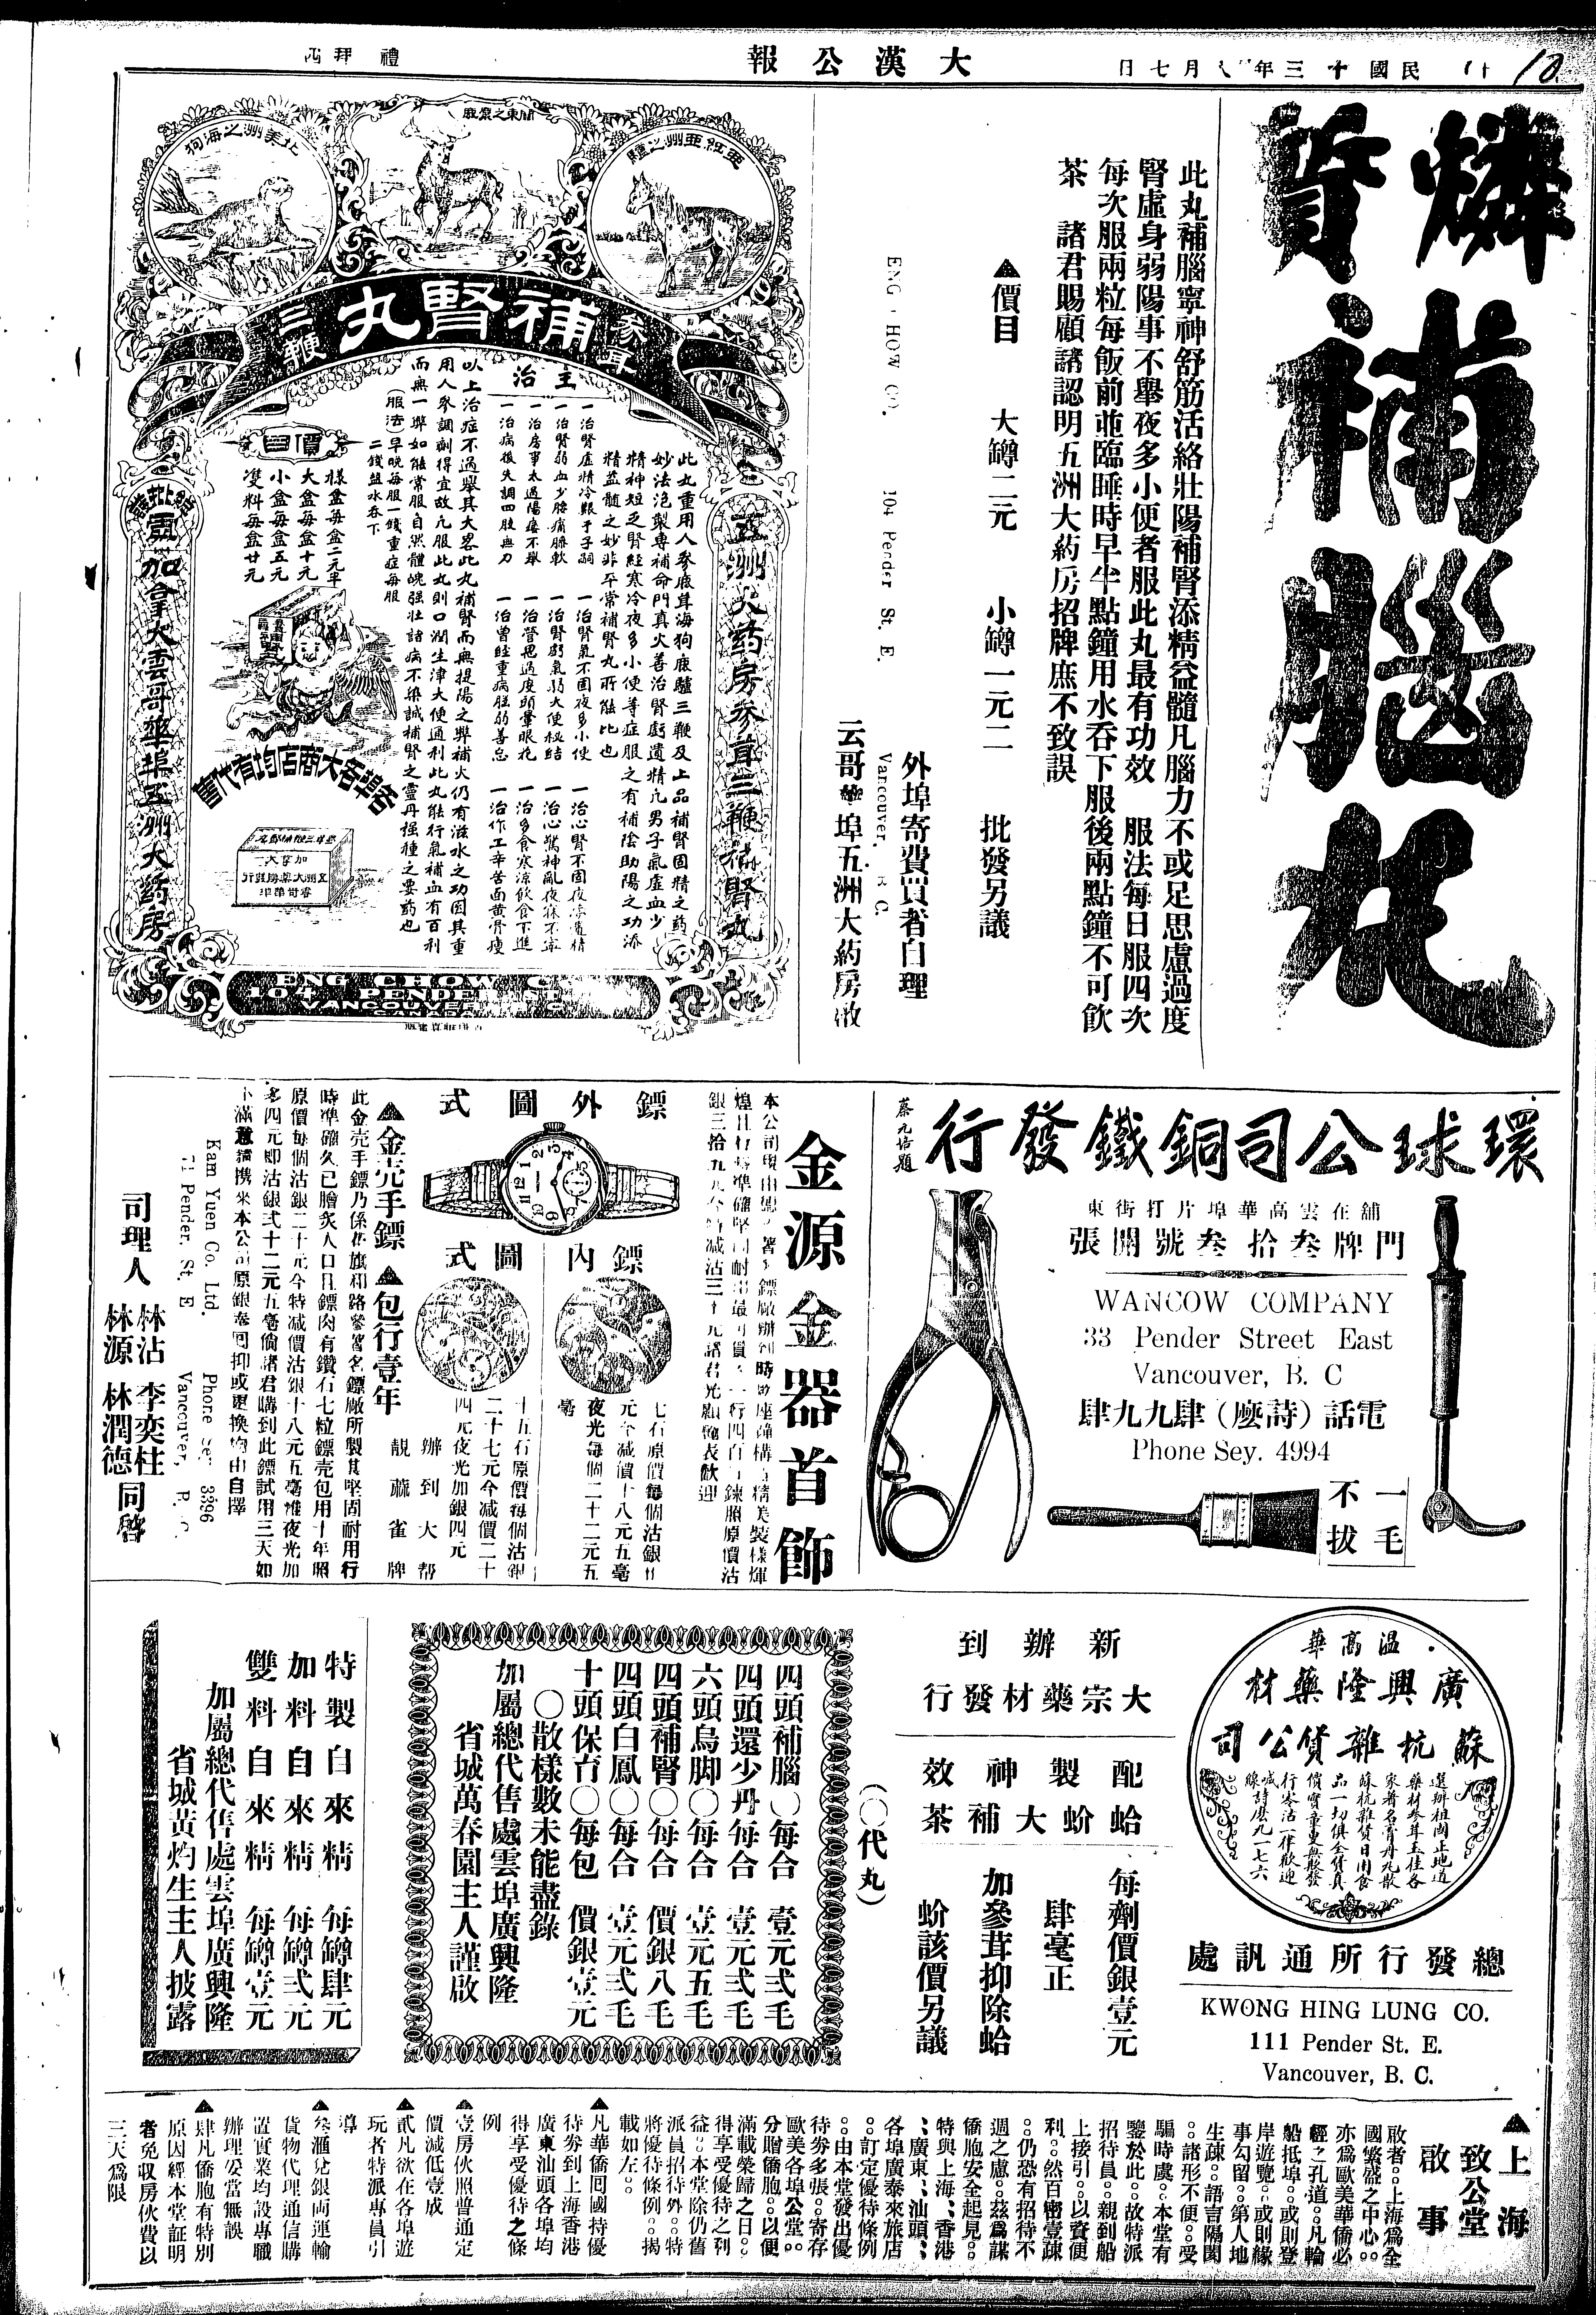 大漢公報
禮拜四
燐質補腦丸
此丸補腦寧神舒筋活絡壯陽補腎添精益髓凡腦力不或足思慮過度
腎虛身弱陽事不舉夜多小便者服此丸最有功效　服法每日服四次
每次服兩粒每飯前並臨睡時早半點鐘用水吞下服後兩點鐘不可飲
茶　諸君賜顧請認明五洲大葯房招牌庶不致誤
▲價目　大罇二元　小罇一元二　批發另議
外埠寄費買者自理
云哥華埠五洲大葯房啟
ENG HOW CO.
104 Pender St. E.
Vancouver, B. C.
亞細亞洲之驢
關東之原鹿
北美洲之海狗
參茸補腎丸三鞭
五洲大葯房參茸三鞭補腎丸
此丸重用人參鹿茸海狗鹿驢三鞭及上品補腎固精之葯
妙法泡製專補命門真火善治腎虧遺精凡男子氣虛血少
精神短乏腎經寒冷夜多小便等症服之有補陰助陽之功添
精益髓之妙非平常補腎丸所能比也
主治
一治腎虛精冷艱于子嗣
一治腎氣不固夜多小便
一治心腎不固夜夢遺精
一治腎弱血少腰痛膝軟
一治腎虧氣弱大便秘結
一治心驚神亂夜寐不寧
一治房事太過陽痿不舉
一治營思過度頭暈眼花
一治多食寒涼飲食不進
一治病後失調四肢無力
一治曾經重病胜弱善忘
一治作工辛苦面黃骨瘦
以上治症不過舉其大畧此丸補腎而無提陽之弊補火仍有滋水之功因其重
用人參調劑得宜故凡服此丸則口潤生津大便通利此丸能行氣補血有百利
而無一弊如能常服自然體魄强壯諸病不染誠補腎之靈丹種種之要葯也
(服法)早晚每服一錢重症每服
二錢鹽水吞下
價目
樣盒每盒二元半
大盒每盒十元
小盒每盒五元
雙料每盒廿元
各埠各大商店均有代售
總批發
加拿大雲哥華埠五洲大葯房
ENG CHOW C
104 PENDER ST
VANCOUVER
環球公司銅鐵發行
蔡元培題
舖在雲高華埠片打街東
門牌叁拾叁號開張
WANCOW COMPANY
33 Pender Street East
Vancouver, B. C
電話(詩𠻹)肆九九肆
Phone Sey. 4994
一毛
不拔
金源金器首飾
鏢外圖式
鏢內圖式
七石原價每個沽銀廿
元今減價十八元五毫
夜光每個二十二元五
毫
十五石原價每個沽銀
二十七元今減價二十
四元夜光加銀四元
辦到大幫
靚蔴雀牌
▲金壳手鏢　▲包行壹年
此金壳手鏢乃係花旗和路參著名鏢廠所製其堅固耐用行
時準確久已膾炙人口且鏢肉有鑽石七粒鏢壳包用十年照
原價每個沽銀二十元今特減價沽銀十八元五毫惟夜光加
多四元即沽銀弍十二元五毫倘諸君購到此鏢試用三天如
不滿意請携來本公司原銀奉回抑或更換均由自擇
Kam Yuen Co. Ltd.
71 Pender. St. E
Phone Sey. 3396
Vancouver, B. C.
司理人
林沾　李奕柱
林源　林潤德
同啓
溫高華
廣興隆藥材
蘇杭雜貨公司
選辦祖國正地道
藥材參茸玉桂各
家著名膏丹丸散
蘇杭雜貨日用食
品一切俱全貨真
價實童叟無欺發
行零沽一律歡迎
綫詩𠻹九一七六
總發行所通訊處
KWONG HING LUNG CO.
111 Pender St. E.
Vancouver, B. C.
新辦到
大宗藥材發行
配製神效
蛤蚧大補茶
每劑價銀壹元
肆毫正
加參茸抑除蛤
蚧該價另議
(〇代丸)
四頭補腦〇每合　壹元弍毛
四頭還少丹每合　壹元弍毛
六頭烏脚〇每合　壹元五毛
四頭補腎〇每合　價銀八毛
四頭白鳳〇每合　壹元弍毛
十頭保育〇每包　價銀壹元
〇散樣數未能盡錄
加屬總代售處雲埠廣興隆
省城萬春園主人謹啟
特製自來精　每罇肆元
加料自來精　每罇弍元
雙料自來精　每罇壹元
加屬總代售處雲埠廣興隆
省城黃灼生主人披露
▲上海致公堂啟事
啟者。。上海爲全
國繁盛之中心。。
亦爲歐美華僑必
經之孔道。。凡輪
船抵埠。。或則登
岸遊覽。。或則緣
事勾留。。第人地
生疎。。語言隔閡
。。諸形不便。。受
騙時虞。。本堂有
鑒於此。。故特派
招待員。。親到船
上接引。。以資便
利。。然百密壹疎
。。仍恐有招待不
週之慮。。茲爲謀
僑胞安全起見。。
特與上海、香港
、廣東、汕頭、
各埠廣泰來旅店
。。訂定優待條例
。。由本堂發出優
待券多張。。寄存
歐美各埠公堂。。
分贈僑胞。。以便
滿載榮歸之日。。
得享受優待之利
益。。本堂除仍舊
派員招待外。。特
將優待條例。。揭
載如左。。
▲凡華僑回國持優
待券到上海香港
廣東汕頭各埠均
得享受優待之條
例
▲壹房伙照普通定
價減低壹成
▲貳凡欲在各埠遊
玩者特派專員引
導
▲叁滙兌銀両運輸
貨物代理通信購
置實業均設專職
辦理妥當無誤
▲肆凡僑胞有特別
原因經本堂証明
者免収房伙費以
三天爲限